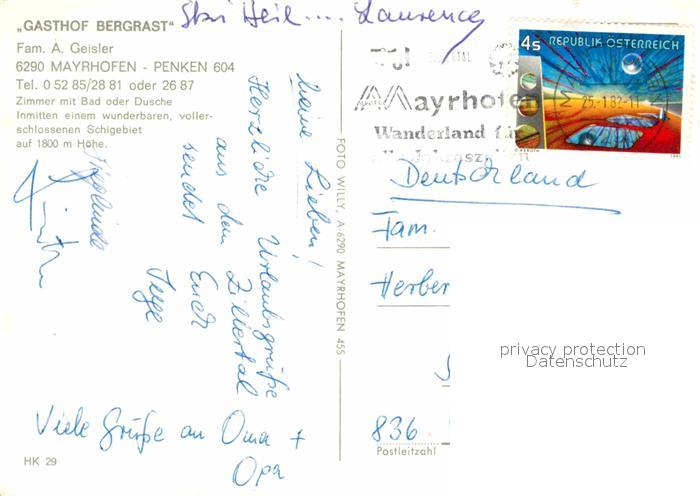 „GASTHOF BERGRAST“
Fam. A. Geisler
6290 MAYRHOFEN - PENKEN 604
Tel. 0 52 85/28 81 oder 26 87
Zimmer mit Bad oder Dusche
Inmitten einem wunderbaren, voller-
schlossenen Schigebiet
auf 1800 m Höhe.
Ski Heil .... Laurence
meine Lieben!
Herzliche Urlaubsgrüße
aus dem Zillertal
sendet Euch
Inge
Viele Grüße an Oma +
Opa
HK 29
FOTO WILLY, A-6290 MAYRHOFEN 455
4s REPUBLIK ÖSTERREICH
Mayrhofen
25.-1.82-11
Wanderland für
Deutschland
Fam.
Herber
privacy protection
Datenschutz
836
Postleitzahl